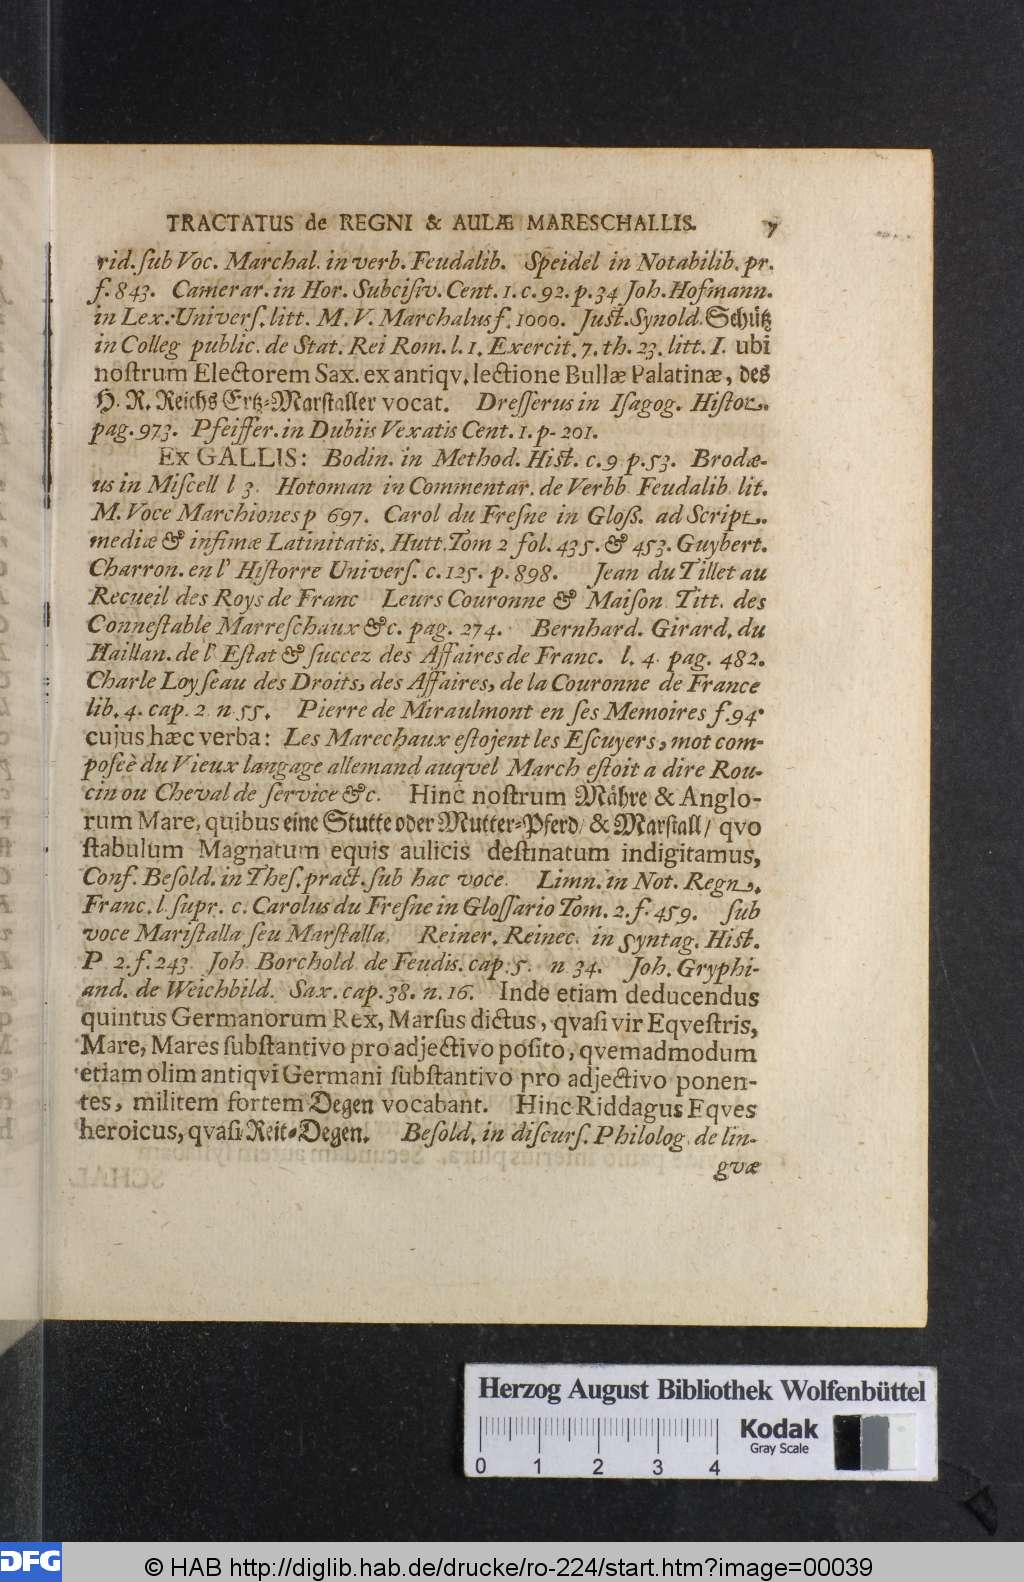 TRACTATUS de REGNI & AULÆ MARESCHALLIS. 7
rid. ſub Voc. Marchal. in verb. Feudalib. Speidel in Notabilib. pr.
f. 843. Camerar. in Hor. Subciſiv. Cent. 1. c. 92. p. 34 Joh. Hofmann.
in Lex. Univerſ. litt. M. V. Marchalus f. 1000. Juſt. Synold. Schütz
in Colleg public. de Stat. Rei Rom. l. 1. Exercit. 7. th. 23. litt. I. ubi
noſtrum Electorem Sax. ex antiqv. lectione Bullæ Palatinæ, des
H. R. Reichs Ertz-Marſtaller vocat. Dreſſerus in Iſagog. Hiſtor.
pag. 973. Pfeiffer. in Dubiis Vexatis Cent. 1. p- 201.
Ex GALLIS: Bodin. in Method. Hiſt. c. 9 p. 53. Brodæ-
us in Miſcell l 3. Hotoman in Commentar. de Verbb Feudalib lit.
M. Voce Marchiones p 697. Carol du Freſne in Gloß. ad Script.
mediæ & infimæ Latinitatis. Hutt. Tom 2 fol. 435. & 453. Guybert.
Charron. en l' Hiſtorre Univerſ. c. 125. p. 898. Jean du Tillet au
Recueil des Roys de Franc Leurs Couronne & Maiſon Titt. des
Conneſtable Marreſchaux &c. pag. 274. Bernhard. Girard. du
Haillan. de l' Eſtat & ſuccez des Affaires de Franc. l. 4. pag. 482.
Charle Loyſeau des Droits, des Affaires, de la Couronne de France
lib. 4. cap. 2 n 55. Pierre de Miraulmont en ſes Memoires f. 94.
cujus hæc verba: Les Marechaux eſtojent les Eſcuyers, mot com-
poſcè du Vieux langage allemand auqvel March eſtoit a dire Rou-
cin ou Cheval de ſervice &c. Hinc noſtrum Mähre & Anglo-
rum Mare, quibus eine Stutte oder Mutter-Pferd/ & Marſtall/ qvo
ſtabulum Magnatum equis aulicis deſtinatum indigitamus,
Conf. Beſold. in Theſ. pract. ſub hac voce. Limn. in Not. Regn.
Franc. l. ſupr. c. Carolus du Freſne in Gloſſario Tom. 2. f. 459. ſub
voce Mariſtalla ſeu Marſtalla. Reiner. Reinec. in ſyntag. Hiſt.
P 2. f. 243 Joh Borchold de Feudis. cap. 5. n 34. Joh. Gryphi-
and. de Weichbild. Sax. cap. 38. n. 16. Inde etiam deducendus
quintus Germanorum Rex, Marſus dictus, qvaſi vir Eqveſtris,
Mare, Mares ſubſtantivo pro adjectivo poſito, qvemadmodum
etiam olim antiqvi Germani ſubſtantivo pro adjectivo ponen-
tes, militem fortem Degen vocabant. Hinc Riddagus Eqves
heroicus, qvaſi Reit-Degen. Beſold. in diſcurſ. Philolog. de lin-
gvæ
Herzog August Bibliothek Wolfenbüttel
Kodak
Gray Scale
0 1 2 3 4
DFG
© HAB http://diglib.hab.de/drucke/ro-224/start.htm?image=00039